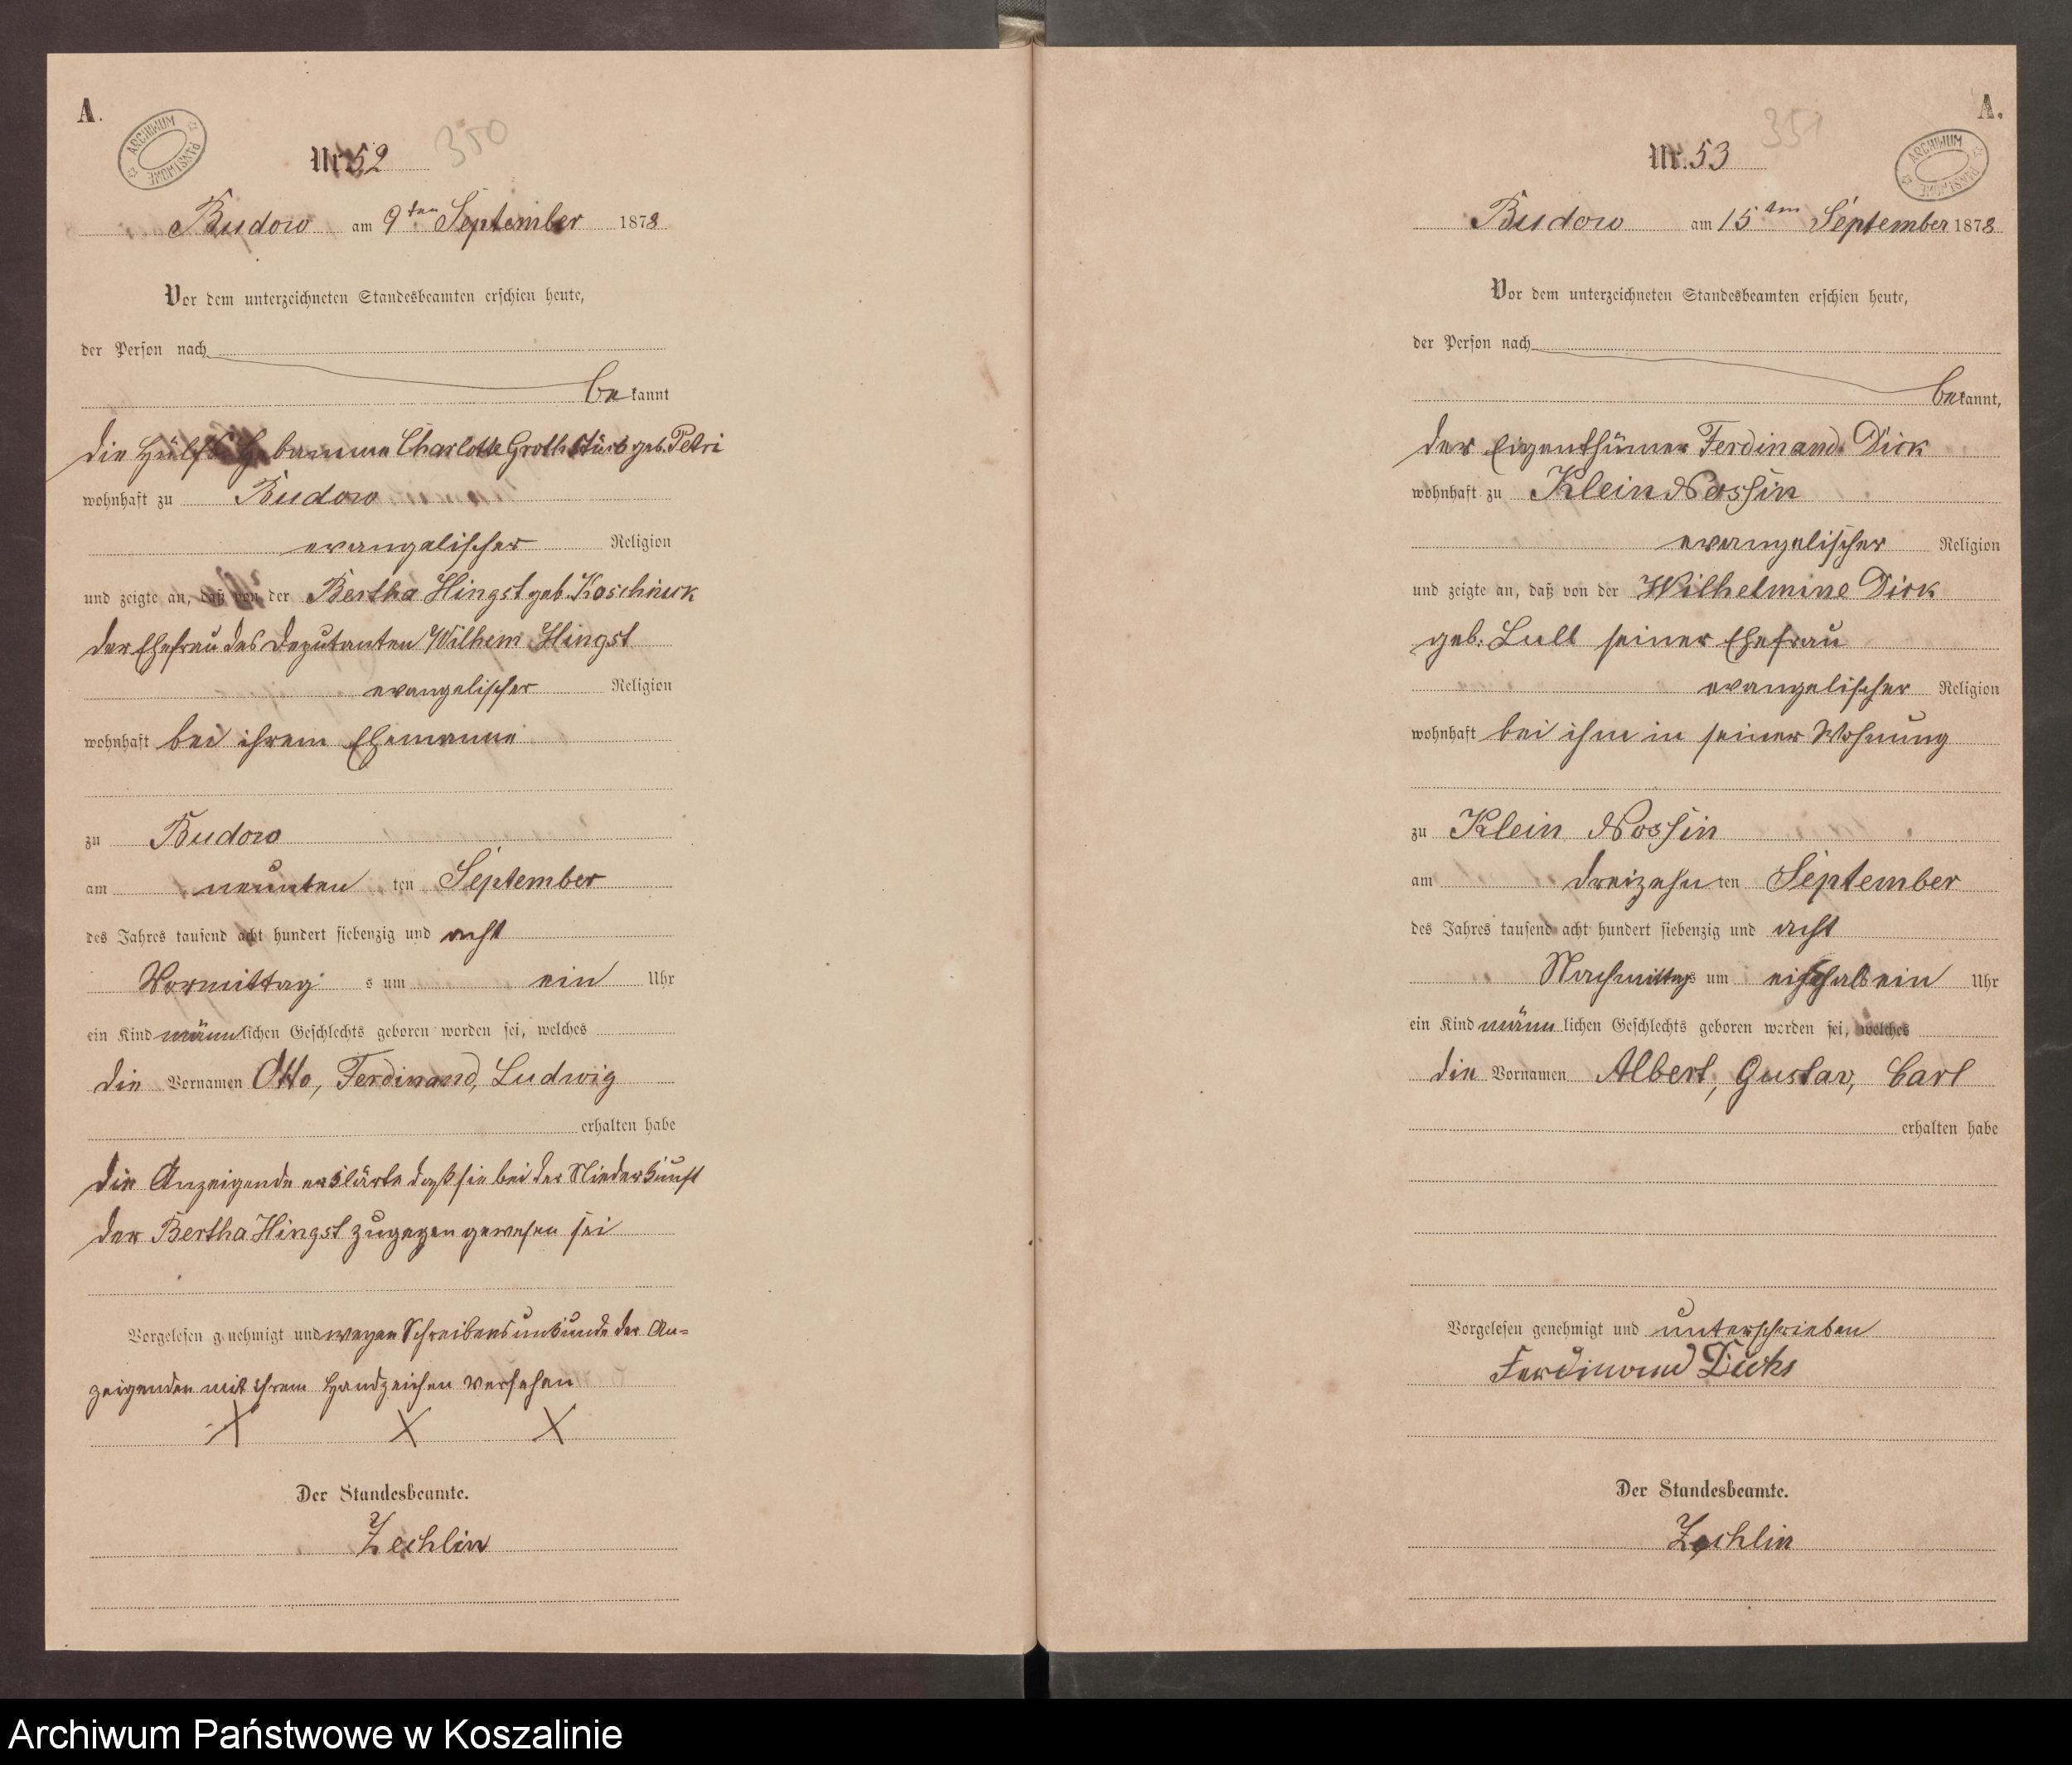 A.
ARCHIWUM PAŃSTWOWE
350
Nr. 52
Budow am 9ten September 1878
Vor dem unterzeichneten Standesbeamten erschien heute,
der Person nach
bekannt
die Hülfs Hebamme Charlotte Groth geb. Petri
wohnhaft zu Budow
evangelischer Religion
und zeigte an, daß von der Bertha Hingst geb. Koschnick
der Ehefrau des Deputanten Wilhem Hingst
evangelischer Religion
wohnhaft bei ihrem Ehemanne
zu Budow
am neunten ten September
des Jahres tausend acht hundert siebenzig und acht
Vormittag s um ein Uhr
ein Kind männlichen Geschlechts geboren worden sei, welches
die Vornamen Otto, Ferdinand, Ludwig
erhalten habe
die Anzeigende erklärte daß sie bei der Niederkunft
der Bertha Hingst zugegen gewesen sei
Vorgelesen genehmigt und wegen Schreibensunkunde der An=
zeigenden mit ihrem Handzeichen versehen
X X X
Der Standesbeamte.
Zechlin
A.
ARCHIWUM PAŃSTWOWE
351
Nr. 53
Budow am 15ten September 1878
Vor dem unterzeichneten Standesbeamten erschien heute,
der Person nach
bekannt,
der Eigenthümer Ferdinand Dick
wohnhaft zu Klein Nossin
evangelischer Religion
und zeigte an, daß von der Wilhelmine Dick
geb. Lull seiner Ehefrau
evangelischer Religion
wohnhaft bei ihm in seiner Wohnung
zu Klein Nossin
am dreizehn ten September
des Jahres tausend acht hundert siebenzig und acht
Nachmittags um halb ein Uhr
ein Kind männlichen Geschlechts geboren worden sei, welches
die Vornamen Albert, Gustav, Carl
erhalten habe
Vorgelesen genehmigt und unterschrieben
Ferdinand
Der Standesbeamte.
Zechlin
Archiwum Państwowe w Koszalinie